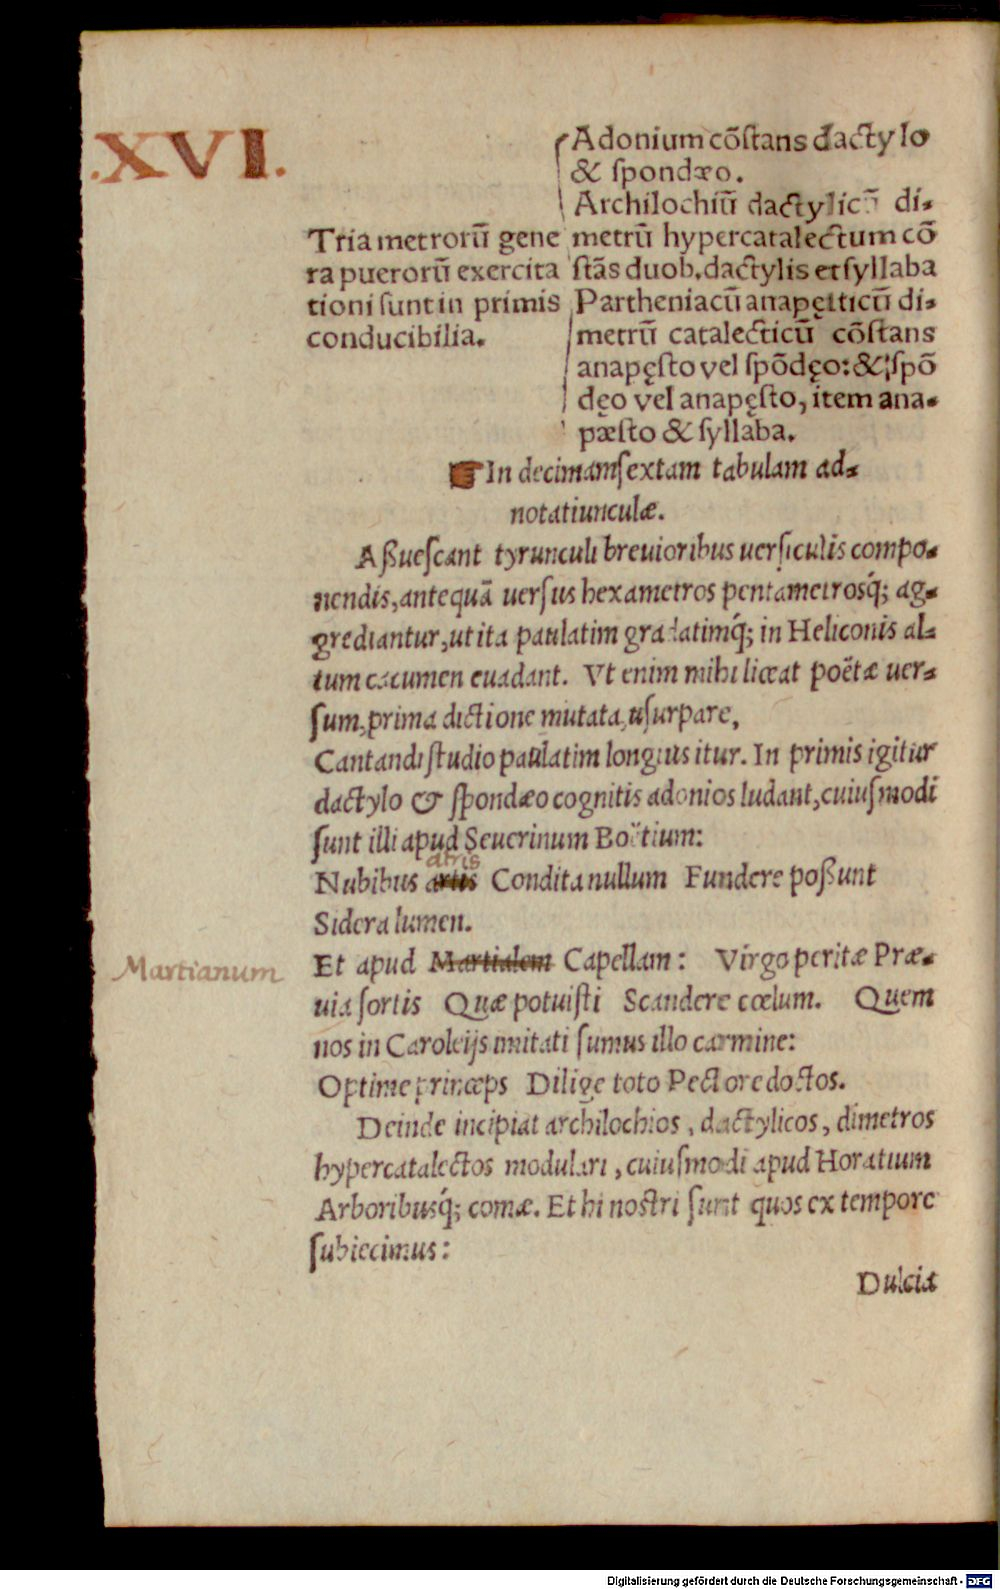 .XVI.
Tria metrorū gene
ra puerorū exercita
tioni sunt in primis
conducibilia.
Adonium cōstans dactylo
& spondæo.
Archilochiū dactylicū di-
metrū hypercatalectum cō
stãs duob. dactylis et syllaba
Partheniacū anapęsticū di-
metrū catalecticū cōstans
anapęsto vel spōdęo: & spō
dęo vel anapęsto, item ana-
pæsto & syllaba.
☛ In decimamsextam tabulam ad-
notatiunculæ.
Aßuescant tyrunculi breuioribus uersiculis compo-
nendis, antequā uersus hexametros pentametrosq́; ag-
grediantur, ut ita paulatim gradatimq́; in Heliconis al-
tum cacumen euadant. Vt enim mihi liceat poëtæ uer-
sum, prima dictione mutata, usurpare,
Cantandi studio paulatim longius itur. In primis igitur
dactylo & spondæo cognitis adonios ludant, cuiusmodi
sunt illi apud Seuerinum Boëtium:
atris
Nubibus Condita nullum Fundere poßunt
Sidera lumen.
Martianum
Et apud Martialem Capellam: Virgo peritæ Præ-
uia sortis Quæ potuisti Scandere cœlum. Quem
nos in Caroleijs imitati sumus illo carmine:
Optime princeps Dilige toto Pectore doctos.
Deinde incipiat archilochios, dactylicos, dimetros
hypercatalectos modulari, cuiusmodi apud Horatium
Arboribusq́; comæ. Et hi nostri sunt quos ex tempore
subiecimus:
Dulcia
Digitalisierung gefördert durch die Deutsche Forschungsgemeinschaft - DFG